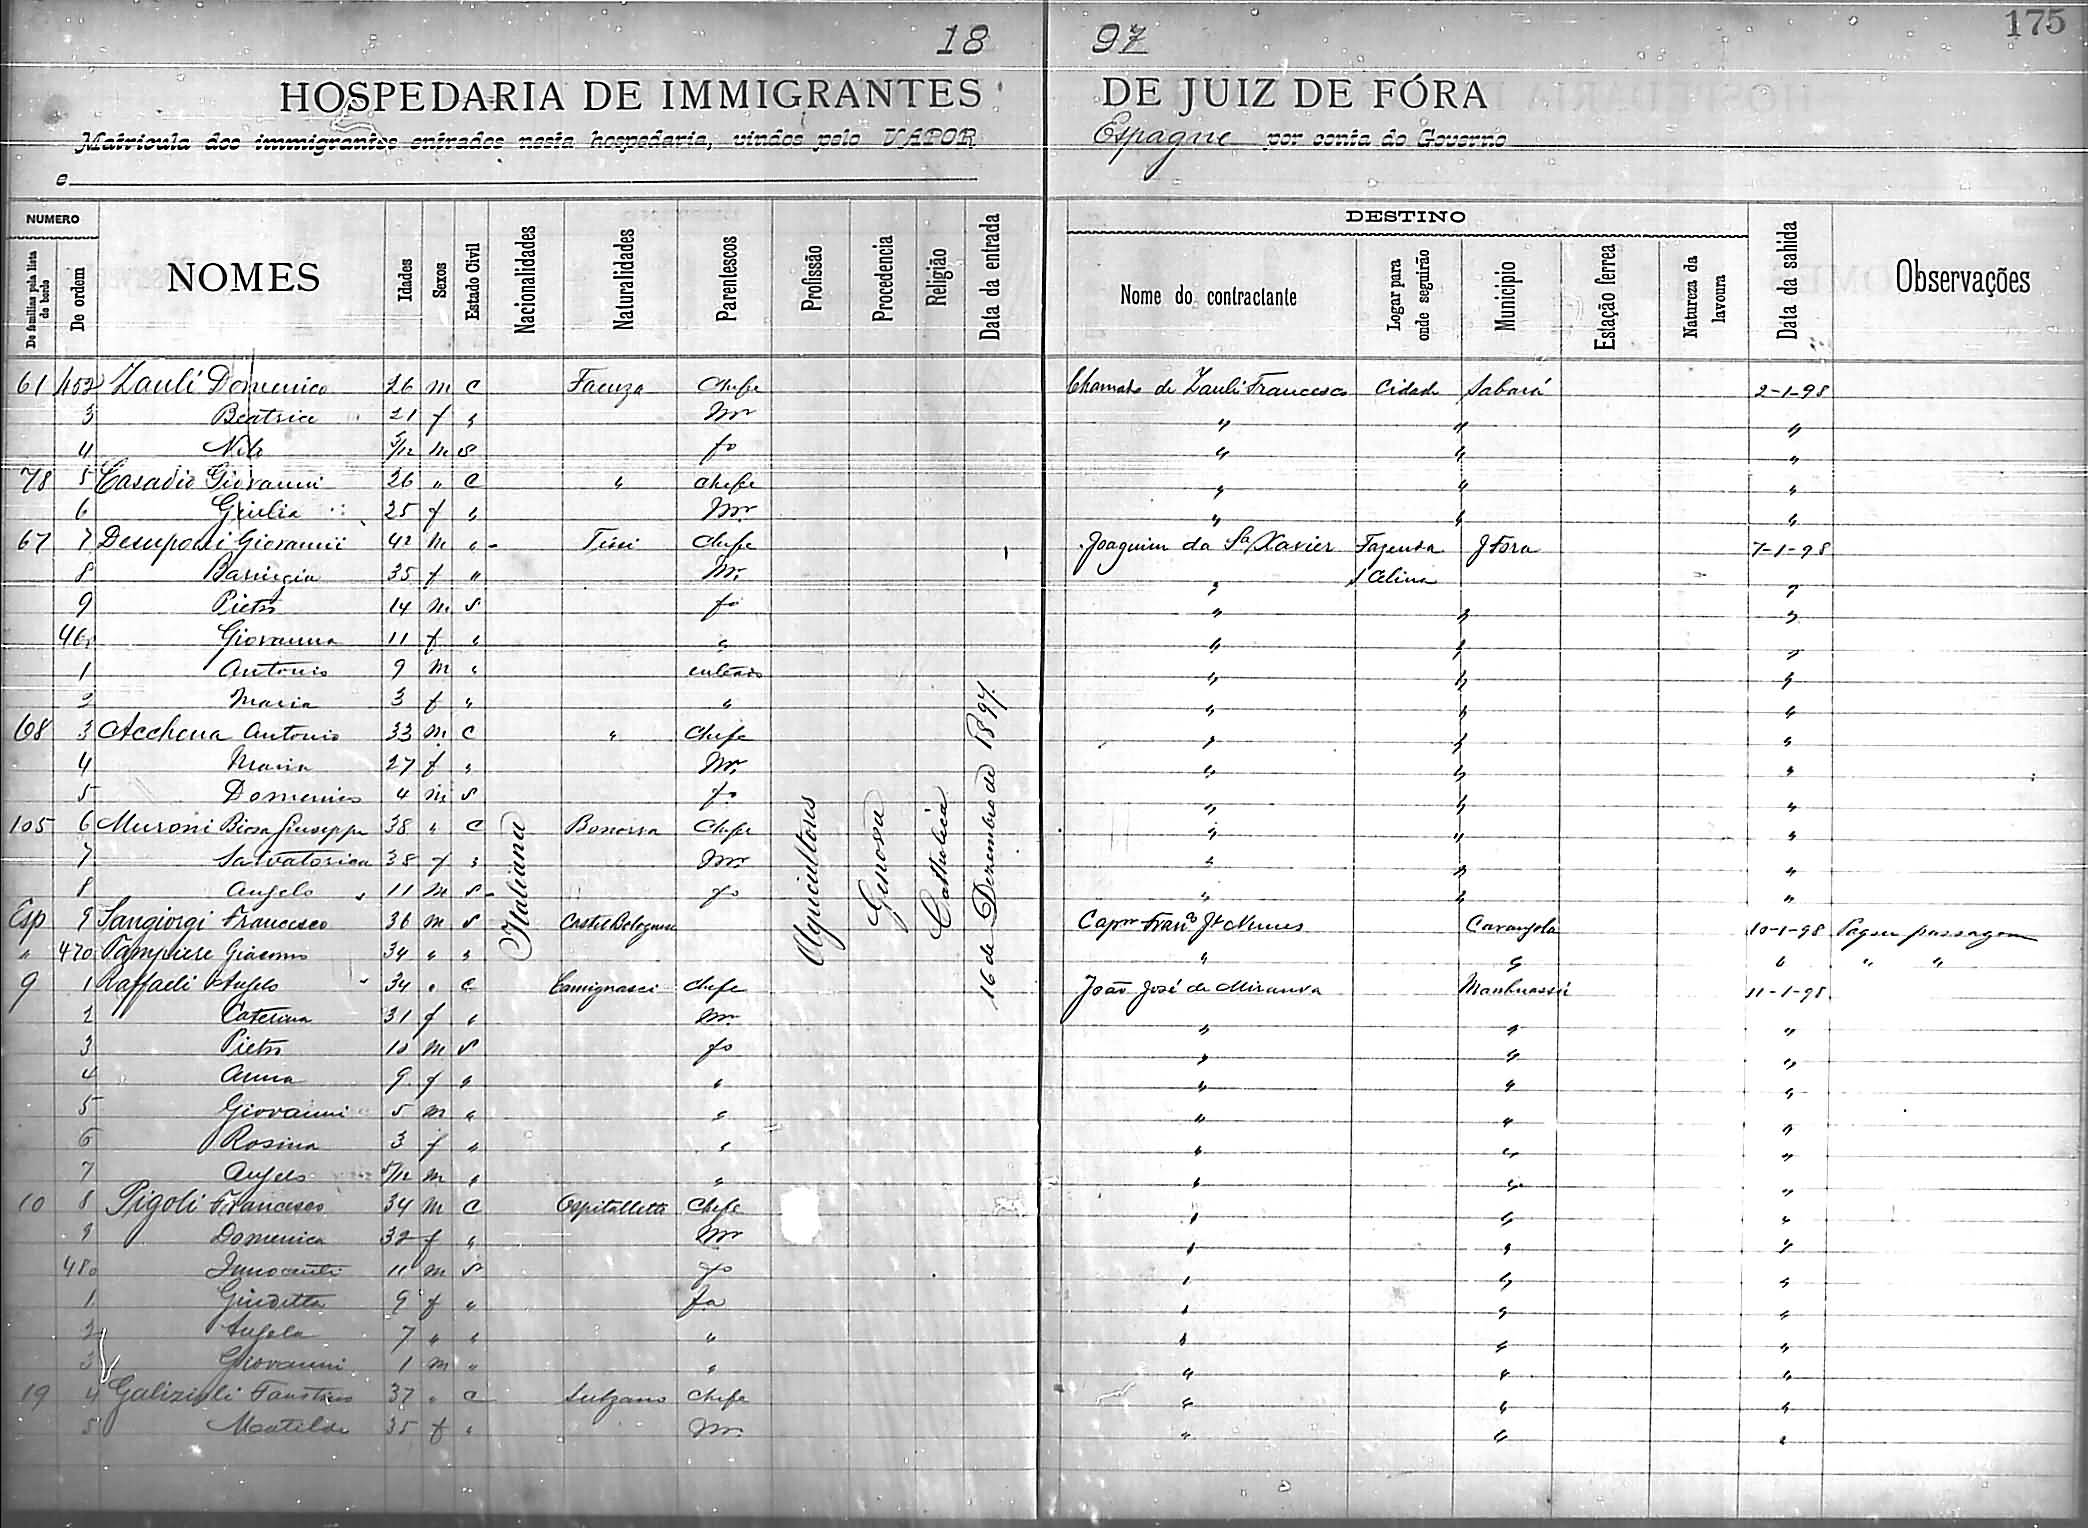 175
18 97
HOSPEDARIA DE IMMIGRANTES DE JUIZ DE FÓRA
Matricula dos immigrantes entrados nesta hospedaria, vindos pelo VAPOR Espagne por conta do Governo
e
NUMERO DESTINO
De familias pela lista de bordo De ordem NOMES Idades Sexos Estado Civil Nacionalidades Naturalidades Parentescos Profissão Procedencia Religião Data da entrada Nome do contractante Logar para onde seguirão Municipio Estação ferrea Natureza da lavoura Data da sahida Observações
61 452 Zauli Domenico 26 m C Faenza Chefe Chamado de Zauli Francesco Cidade Sabará 2-1-98
3 Beatrice 21 f " Mr " " "
4 m S fo " " "
78 5 Casadio Giovanni 26 " C " Chefe " " "
6 Giulia 25 f " Mr " " "
67 7 Giovanni 42 m " Tissi Chefe Joaquim da Sa Xavier Fazenda J Fora 7-1-98
8 35 f " Mr " "
9 Pietro 14 m S fo " " "
460 Giovanna 11 f " " " " "
1 Antonio 9 m " enteado " " "
2 Maria 3 f " " " " "
68 3 Acchena Antonio 33 m C " Chefe " " "
4 Maria 27 f " Mr " " "
5 Domenico 4 m S fo " " "
105 6 Muroni Biosa Giuseppe 38 " C Bonorva Chefe " " "
7 Salvatorica 38 f " Mr " " "
8 Angelo 11 m S fo " " "
Italiana Agricultores Genova Catholica 16 de Dezembro de 1897
Esp 9 Sangiorgi Francesco 36 m S Castel Bolognese Capm Franco Je Nunes Carangola 10-1-98 Pagou passagem
" 470 Tampiere Giacomo 34 " " " " " " "
9 1 Raffaeli Angelo 34 " C Chefe João José de Miranda Manhuassú 11-1-98
2 Caterina 31 f " Mr " " "
3 Pietro 10 m S fo " " "
4 Anna 9 f " " " " "
5 Giovanni 5 m " " " " "
6 Rosina 3 f " " " " "
7 Angelo 5/12 m " " " " "
10 8 Pigoli Francesco 34 m C Ospitalletto Chefe " " "
9 Domenica 32 f " Mr " " "
480 Innocenti 11 m S fo " " "
1 Giuditta 9 f " fa " " "
2 Angela 7 " " " " " "
3 Giovanni 1 m " " " " "
19 4 Galizioli Faustino 37 " C Sulzano Chefe " " "
5 Matilde 35 f " Mr " " "